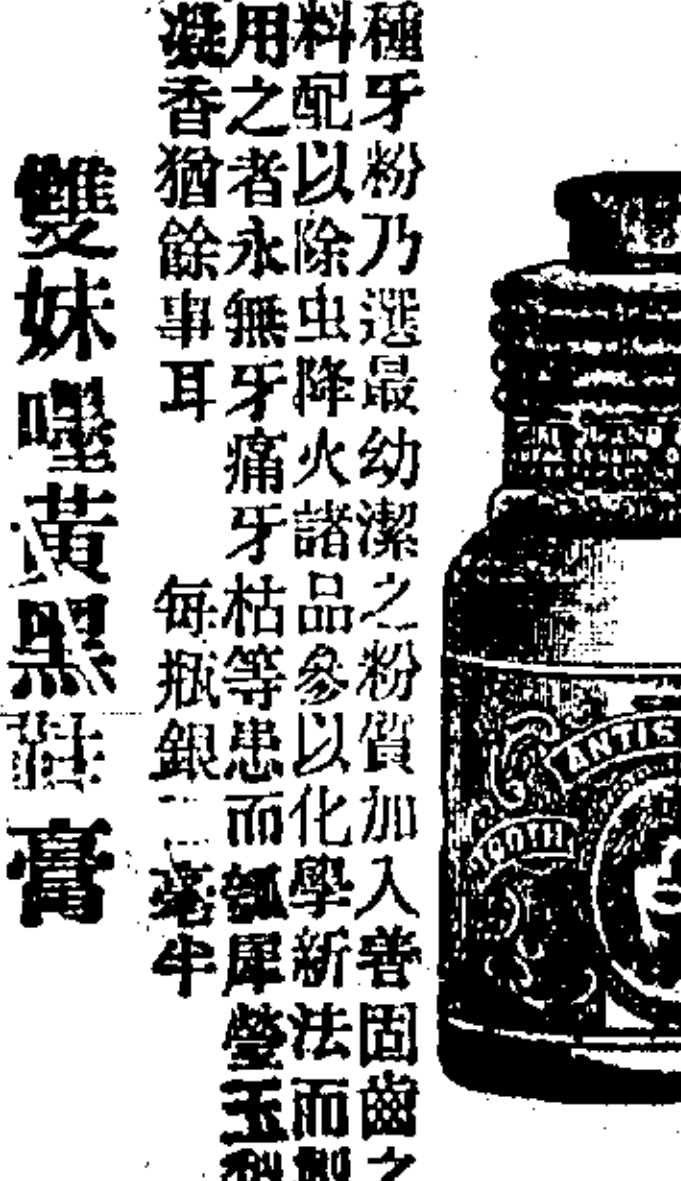 種牙粉乃選最幼潔之粉質加入善固齒之
料配以除虫降火諸品參以化學新法而製
用之者永無牙痛牙枯等患而瓠犀瑩玉
凝香猶餘事耳 每瓶銀二毫半
雙妹嘜黃黑
膏
ANTIS
TOOTH